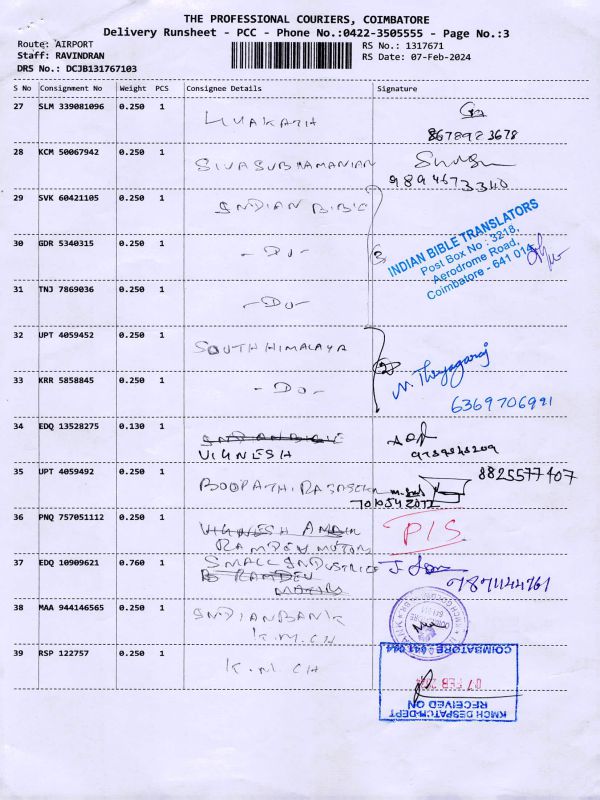 THE PROFESSIONAL COURIERS, COIMBATORE
Delivery Runsheet - PCC - Phone No.:0422-3505555 - Page No.:3
Route: AIRPORT
RS No.: 1317671
Staff: RAVINDRAN
RS Date: 07-Feb-2024
DRS No.: DCJB131767103
S No Consignment No Weight PCS Consignee Details Signature
27 SLM 339081096 0.250 1
8678923678
28 KCM 50067942 0.250 1 SIVASUBRAMANIAN
9894673340
29 SVK 60421105 0.250 1 INDIAN BIBLE
INDIAN BIBLE TRANSLATORS
Post Box No : 3218,
Aerodrome Road,
Coimbatore - 641 014
30 GDR 5340315 0.250 1 - Do -
31 TNJ 7869036 0.250 1 - Do -
32 UPT 4059452 0.250 1 SOUTH HIMALAYA
N. Thyagaraj
33 KRR 5858845 0.250 1 - Do -
6369706921
34 EDQ 13528275 0.130 1 INDIAN BIBLE
VIGNESH
35 UPT 4059492 0.250 1 BOOPATHI. RAJASEKAR
8825577407
36 PNQ 757051112 0.250 1 VIGNESH
RAMDEV MOTORS
P/S
37 EDQ 10909621 0.760 1 SMALL INDUSTRIES
RAMDEV
38 MAA 944146565 0.250 1 INDIAN BANK
K.M.CH
39 RSP 122757 0.250 1 K.M.CH
COIMBATORE - 641 014
07 FEB 2024
RECEIVED ON
KMCH DESPATCH-DEPT